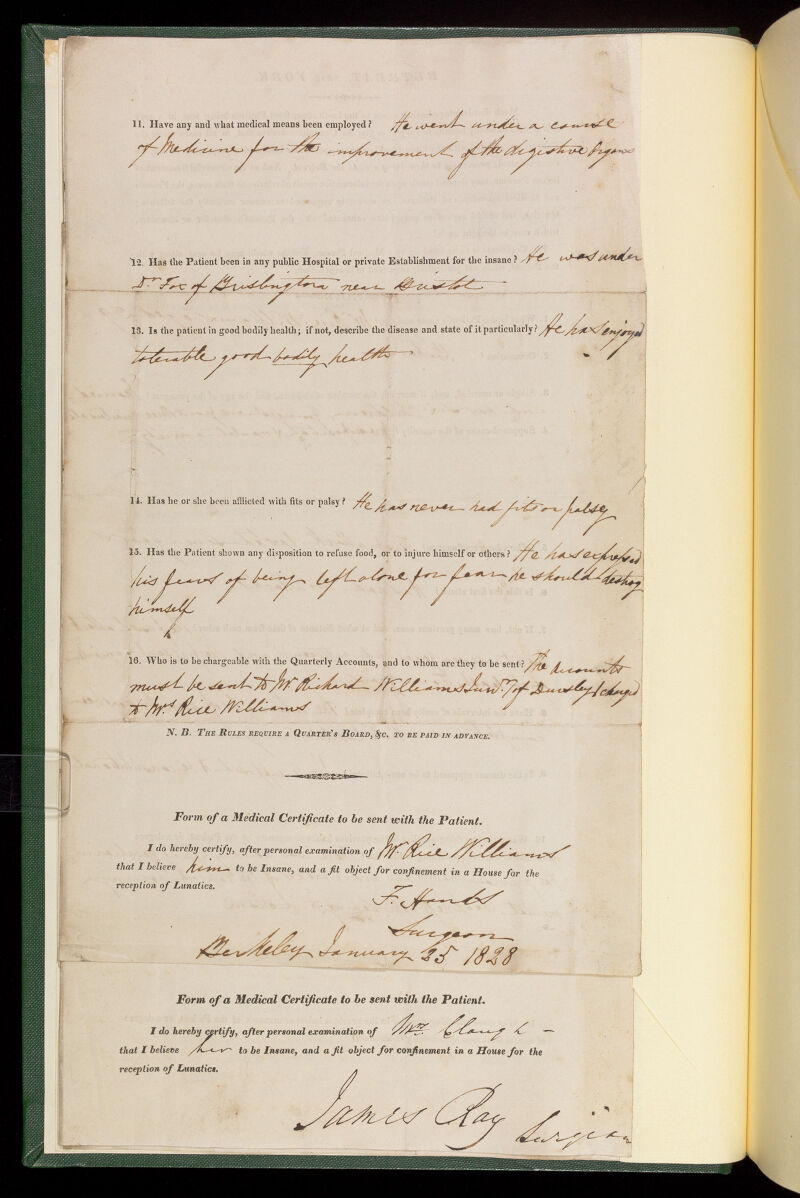 11. Have any and what medical means been employed? He went under a course
of Medicine for the improvement of the digistive Organs
12. Has the Patient been in any public Hospital or private Establishment for the insane? He was under
Dr Fox of Brislington near Bristol
13. Is the patient in good bodily health; if not, describe the disease and state of it particularly? He has enjoyed
tolerable good bodily health
14. Has he or she been afflicted with fits or palsy? He has never had fits or palsey
15. Has the Patient shown any disposition to refuse food, or to injure himself or others? He has expressed
his fears of being left alone for fear he should destroy
himself
16. Who is to be chargeable with the Quarterly Accounts, and to whom are they to be sent? The accounts
must be sent to Mr Richard Williams Junr. of Dursley & charged
to Mrs Rice Williams
N. B. THE RULES REQUIRE A QUARTER'S BOARD, &c. TO BE PAID IN ADVANCE.
Form of a Medical Certificate to be sent with the Patient.
I do hereby certify, after personal examination of Mr Rice Williams
that I believe him to be Insane, and a fit object for confinement in a House for the
reception of Lunatics.
F. Hands
Surgeon
Berkeley January 25 1828
Form of a Medical Certificate to be sent with the Patient.
I do hereby certify, after personal examination of Mrs. Clough -
that I believe her to be Insane, and a fit object for confinement in a House for the
reception of Lunatics.
James Ray Surgeon